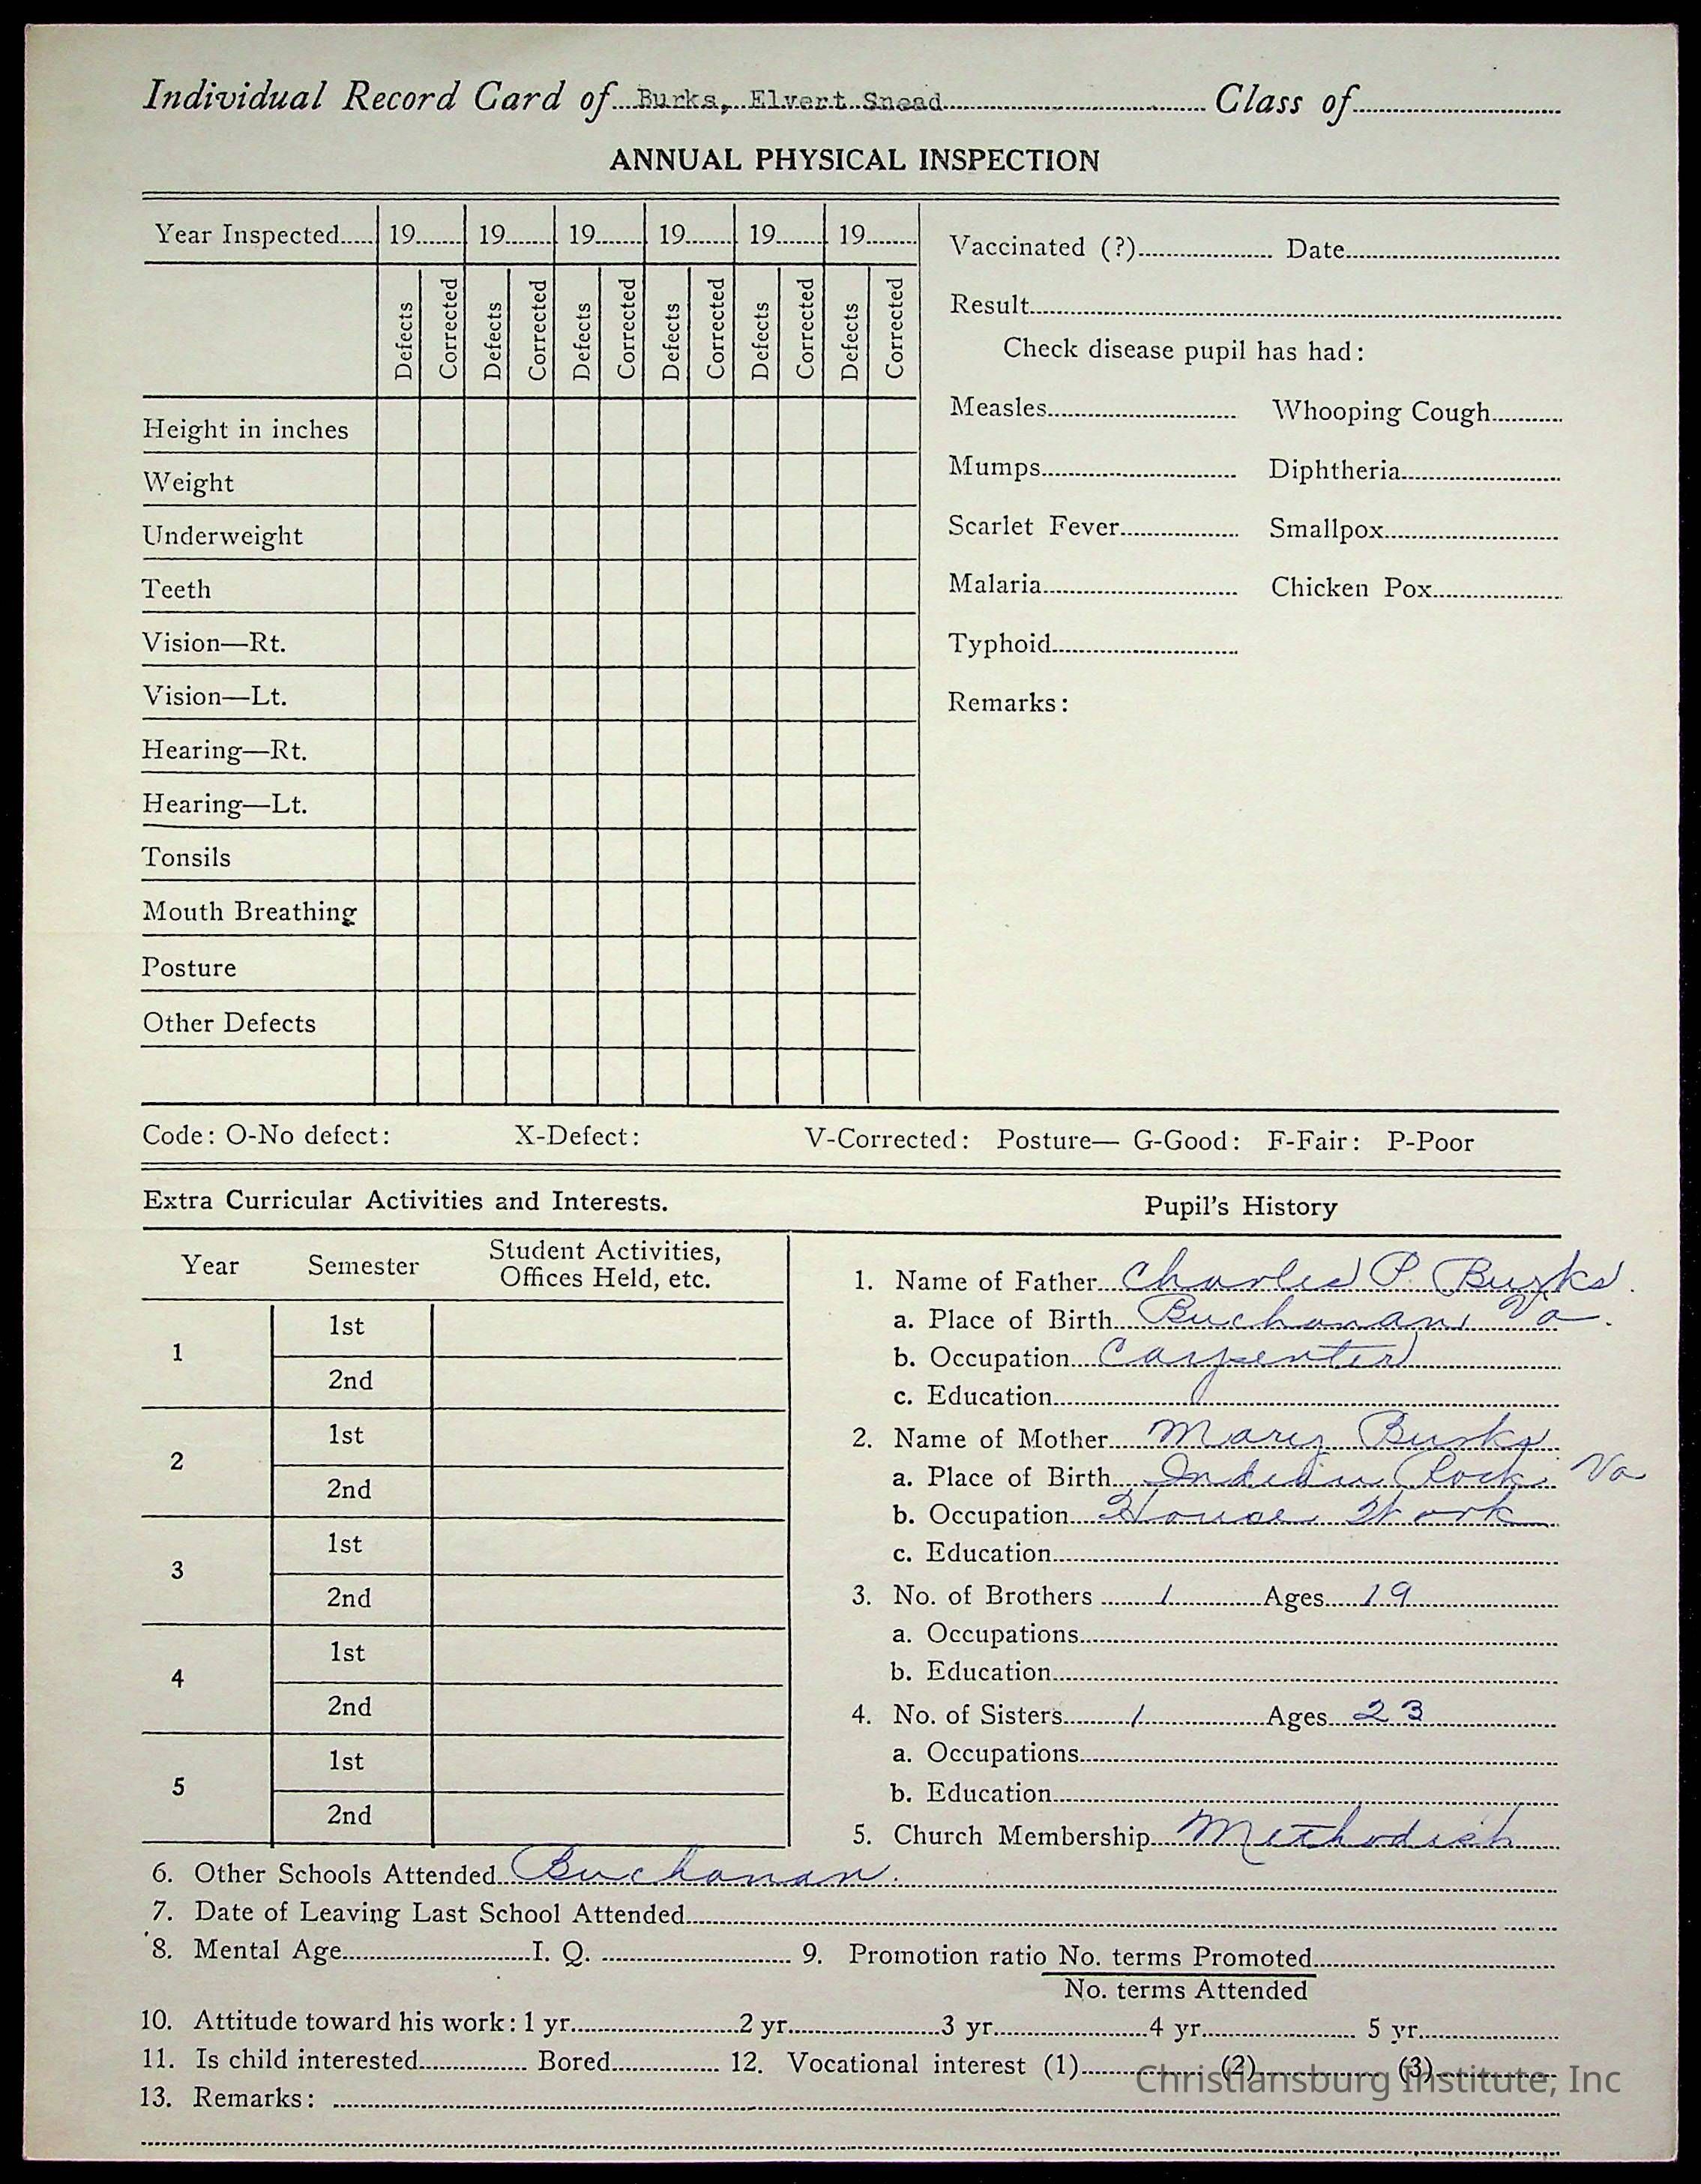 Individual Record Card of Burks, Elvert Snead Class of
ANNUAL PHYSICAL INSPECTION
Year Inspected 19 19 19 19 19 19
Defects Corrected Defects Corrected Defects Corrected Defects Corrected Defects Corrected Defects Corrected
Height in inches
Weight
Underweight
Teeth
Vision—Rt.
Vision—Lt.
Hearing—Rt.
Hearing—Lt.
Tonsils
Mouth Breathing
Posture
Other Defects
Vaccinated (?) Date
Result
Check disease pupil has had:
Measles Whooping Cough
Mumps Diphtheria
Scarlet Fever Smallpox
Malaria Chicken Pox
Typhoid
Remarks:
Code: O-No defect: X-Defect: V-Corrected: Posture— G-Good: F-Fair: P-Poor
Extra Curricular Activities and Interests.
Year Semester Student Activities,
Offices Held, etc.
1 1st
2nd
2 1st
2nd
3 1st
2nd
4 1st
2nd
5 1st
2nd
Pupil's History
1. Name of Father Charles P. Burks.
a. Place of Birth Buchanan, Va.
b. Occupation Carpenter
c. Education
2. Name of Mother Mary Burks
a. Place of Birth Indian Rock, Va
b. Occupation House Work
c. Education
3. No. of Brothers 1 Ages 19
a. Occupations
b. Education
4. No. of Sisters 1 Ages 23
a. Occupations
b. Education
5. Church Membership Methodist
6. Other Schools Attended Buchanan.
7. Date of Leaving Last School Attended
8. Mental Age I. Q. 9. Promotion ratio No. terms Promoted
No. terms Attended
10. Attitude toward his work: 1 yr. 2 yr. 3 yr. 4 yr. 5 yr.
11. Is child interested Bored 12. Vocational interest (1) (2) (3)
Christiansburg Institute, Inc
13. Remarks: